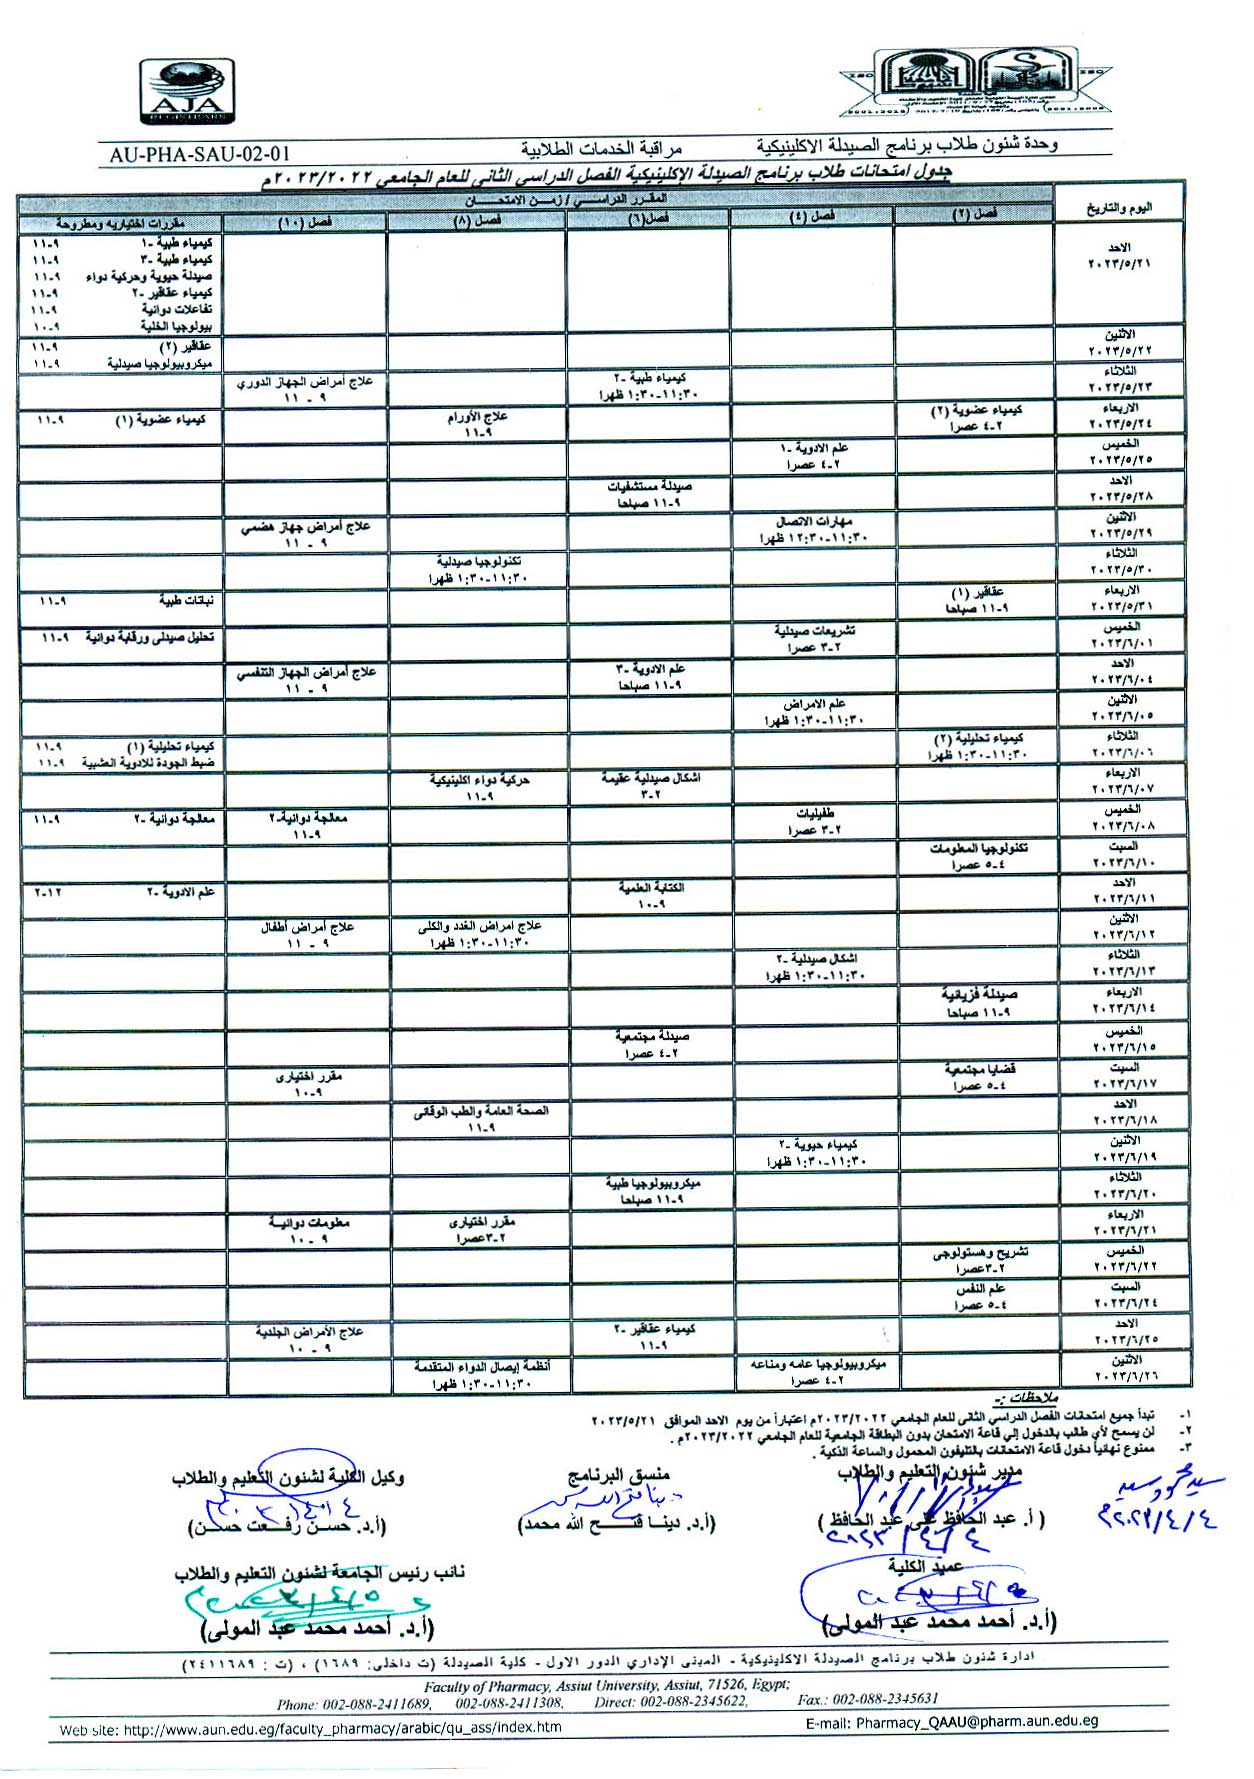 AJA
REGISTRARS
وحدة شئون طلاب برنامج الصيدلة الاكلينيكية مراقبة الخدمات الطلابية AU-PHA-SAU-02-01
جدول امتحانات طلاب برنامج الصيدلة الإكلينيكية الفصل الدراسي الثانى للعام الجامعي ٢٠٢٣/٢٠٢٢م
اليوم والتاريخ المقرر الدراسي / زمن الامتحان
فصل (٢) فصل (٤) فصل(٦) فصل (٨) فصل (١٠) مقررات اختياريه ومطروحة
الاحد كيمياء طبية -١ ٩-١١
٢٠٢٣/٥/٢١ كيمياء طبية -٣ ٩-١١
صيدلة حيوية وحركية دواء ٩-١١
كيمياء عقاقير -٢ ٩-١١
تفاعلات دوائية ٩-١١
بيولوجيا الخلية ٩-١٠
الاثنين عقاقير (٢) ٩-١١
٢٠٢٣/٥/٢٢ ميكروبيولوجيا صيدلية ٩-١١
الثلاثاء كيمياء طبية -٢ علاج أمراض الجهاز الدوري
٢٠٢٣/٥/٢٣ ١١:٣٠-١:٣٠ ظهرا ٩ - ١١
الاربعاء كيمياء عضوية (٢) علاج الأورام كيمياء عضوية (١) ٩-١١
٢٠٢٣/٥/٢٤ ٢-٤ عصرا ٩-١١
الخميس علم الادوية -١
٢٠٢٣/٥/٢٥ ٢-٤ عصرا
الاحد صيدلة مستشفيات
٢٠٢٣/٥/٢٨ ٩-١١ صباحا
الاثنين مهارات الاتصال علاج أمراض جهاز هضمي
٢٠٢٣/٥/٢٩ ١١:٣٠-١٢:٣٠ ظهرا ٩ - ١١
الثلاثاء تكنولوجيا صيدلية
٢٠٢٣/٥/٣٠ ١١:٣٠-١:٣٠ ظهرا
الاربعاء عقاقير (١) نباتات طبية ٩-١١
٢٠٢٣/٥/٣١ ٩-١١ صباحا
الخميس تشريعات صيدلية تحليل صيدلى ورقابة دوائية ٩-١١
٢٠٢٣/٦/٠١ ٢-٣ عصرا
الاحد علم الادوية -٣ علاج أمراض الجهاز التنفسي
٢٠٢٣/٦/٠٤ ٩-١١ صباحا ٩ - ١١
الاثنين علم الامراض
٢٠٢٣/٦/٠٥ ١١:٣٠-١:٣٠ ظهرا
الثلاثاء كيمياء تحليلية (٢) كيمياء تحليلية (١) ٩-١١
٢٠٢٣/٦/٠٦ ١١:٣٠-١:٣٠ ظهرا ضبط الجودة للادوية العشبية ٩-١١
الاربعاء اشكال صيدلية عقيمة حركية دواء اكلينيكية
٢٠٢٣/٦/٠٧ ٢-٣ ٩-١١
الخميس طفيليات معالجة دوائية-٢ معالجة دوائية -٢ ٩-١١
٢٠٢٣/٦/٠٨ ٢-٣ عصرا ٩-١١
السبت تكنولوجيا المعلومات
٢٠٢٣/٦/١٠ ٤-٥ عصرا
الاحد الكتابة العلمية علم الادوية -٢ ١٢-٢
٢٠٢٣/٦/١١ ٩-١٠
الاثنين علاج امراض الغدد والكلى علاج أمراض أطفال
٢٠٢٣/٦/١٢ ١١:٣٠-١:٣٠ ظهرا ٩ - ١١
الثلاثاء اشكال صيدلية -٢
٢٠٢٣/٦/١٣ ١١:٣٠-١:٣٠ ظهرا
الاربعاء صيدلة فزيائية
٢٠٢٣/٦/١٤ ٩-١١ صباحا
الخميس صيدلة مجتمعية
٢٠٢٣/٦/١٥ ٢-٤ عصرا
السبت قضايا مجتمعية مقرر اختيارى
٢٠٢٣/٦/١٧ ٤-٥ عصرا ٩-١٠
الاحد الصحة العامة والطب الوقائى
٢٠٢٣/٦/١٨ ٩-١١
الاثنين كيمياء حيوية -٢
٢٠٢٣/٦/١٩ ١١:٣٠-١:٣٠ ظهرا
الثلاثاء ميكروبيولوجيا طبية
٢٠٢٣/٦/٢٠ ٩-١١ صباحا
الاربعاء مقرر اختيارى معلومات دوائية
٢٠٢٣/٦/٢١ ٢-٣عصرا ٩ - ١٠
الخميس تشريح وهستولوجى
٢٠٢٣/٦/٢٢ ٢-٣عصرا
السبت علم النفس
٢٠٢٣/٦/٢٤ ٤-٥ عصرا
الاحد كيمياء عقاقير -٢ علاج الأمراض الجلدية
٢٠٢٣/٦/٢٥ ٩-١١ ٩ - ١٠
الاثنين ميكروبيولوجيا عامه ومناعه أنظمة إيصال الدواء المتقدمة
٢٠٢٣/٦/٢٦ ٢-٤ عصرا ١١:٣٠-١:٣٠ ظهرا
ملاحظات :-
١- تبدأ جميع امتحانات الفصل الدراسي الثانى للعام الجامعي ٢٠٢٣/٢٠٢٢م اعتباراً من يوم الاحد الموافق ٢٠٢٣/٥/٢١
٢- لن يسمح لأي طالب بالدخول إلي قاعة الامتحان بدون البطاقة الجامعية للعام الجامعي ٢٠٢٣/٢٠٢٢م .
٣- ممنوع نهائياً دخول قاعة الامتحانات بالتليفون المحمول والساعة الذكية .
مدير شئون التعليم والطلاب منسق البرنامج وكيل الكلية لشئون التعليم والطلاب
٢٠٢٣/٤/٤
(أ. عبد الحافظ على عبد الحافظ) (أ.د. دينا فتح الله محمد) (أ.د. حسن رفعت حسن)
٢٠٢٣/٤/٤
عميد الكلية نائب رئيس الجامعة لشئون التعليم والطلاب
(أ.د. أحمد محمد عبد المولى) (أ.د. أحمد محمد عبد المولى)
ادارة شئون طلاب برنامج الصيدلة الاكلينيكية - المبنى الإداري الدور الاول - كلية الصيدلة (ت داخلى: ١٦٨٩) ، (ت : ٢٤١١٦٨٩)
Faculty of Pharmacy, Assiut University, Assiut, 71526, Egypt;
Phone: 002-088-2411689, 002-088-2411308, Direct: 002-088-2345622, Fax.: 002-088-2345631
Web site: http://www.aun.edu.eg/faculty_pharmacy/arabic/qu_ass/index.htm E-mail: Pharmacy_QAAU@pharm.aun.edu.eg